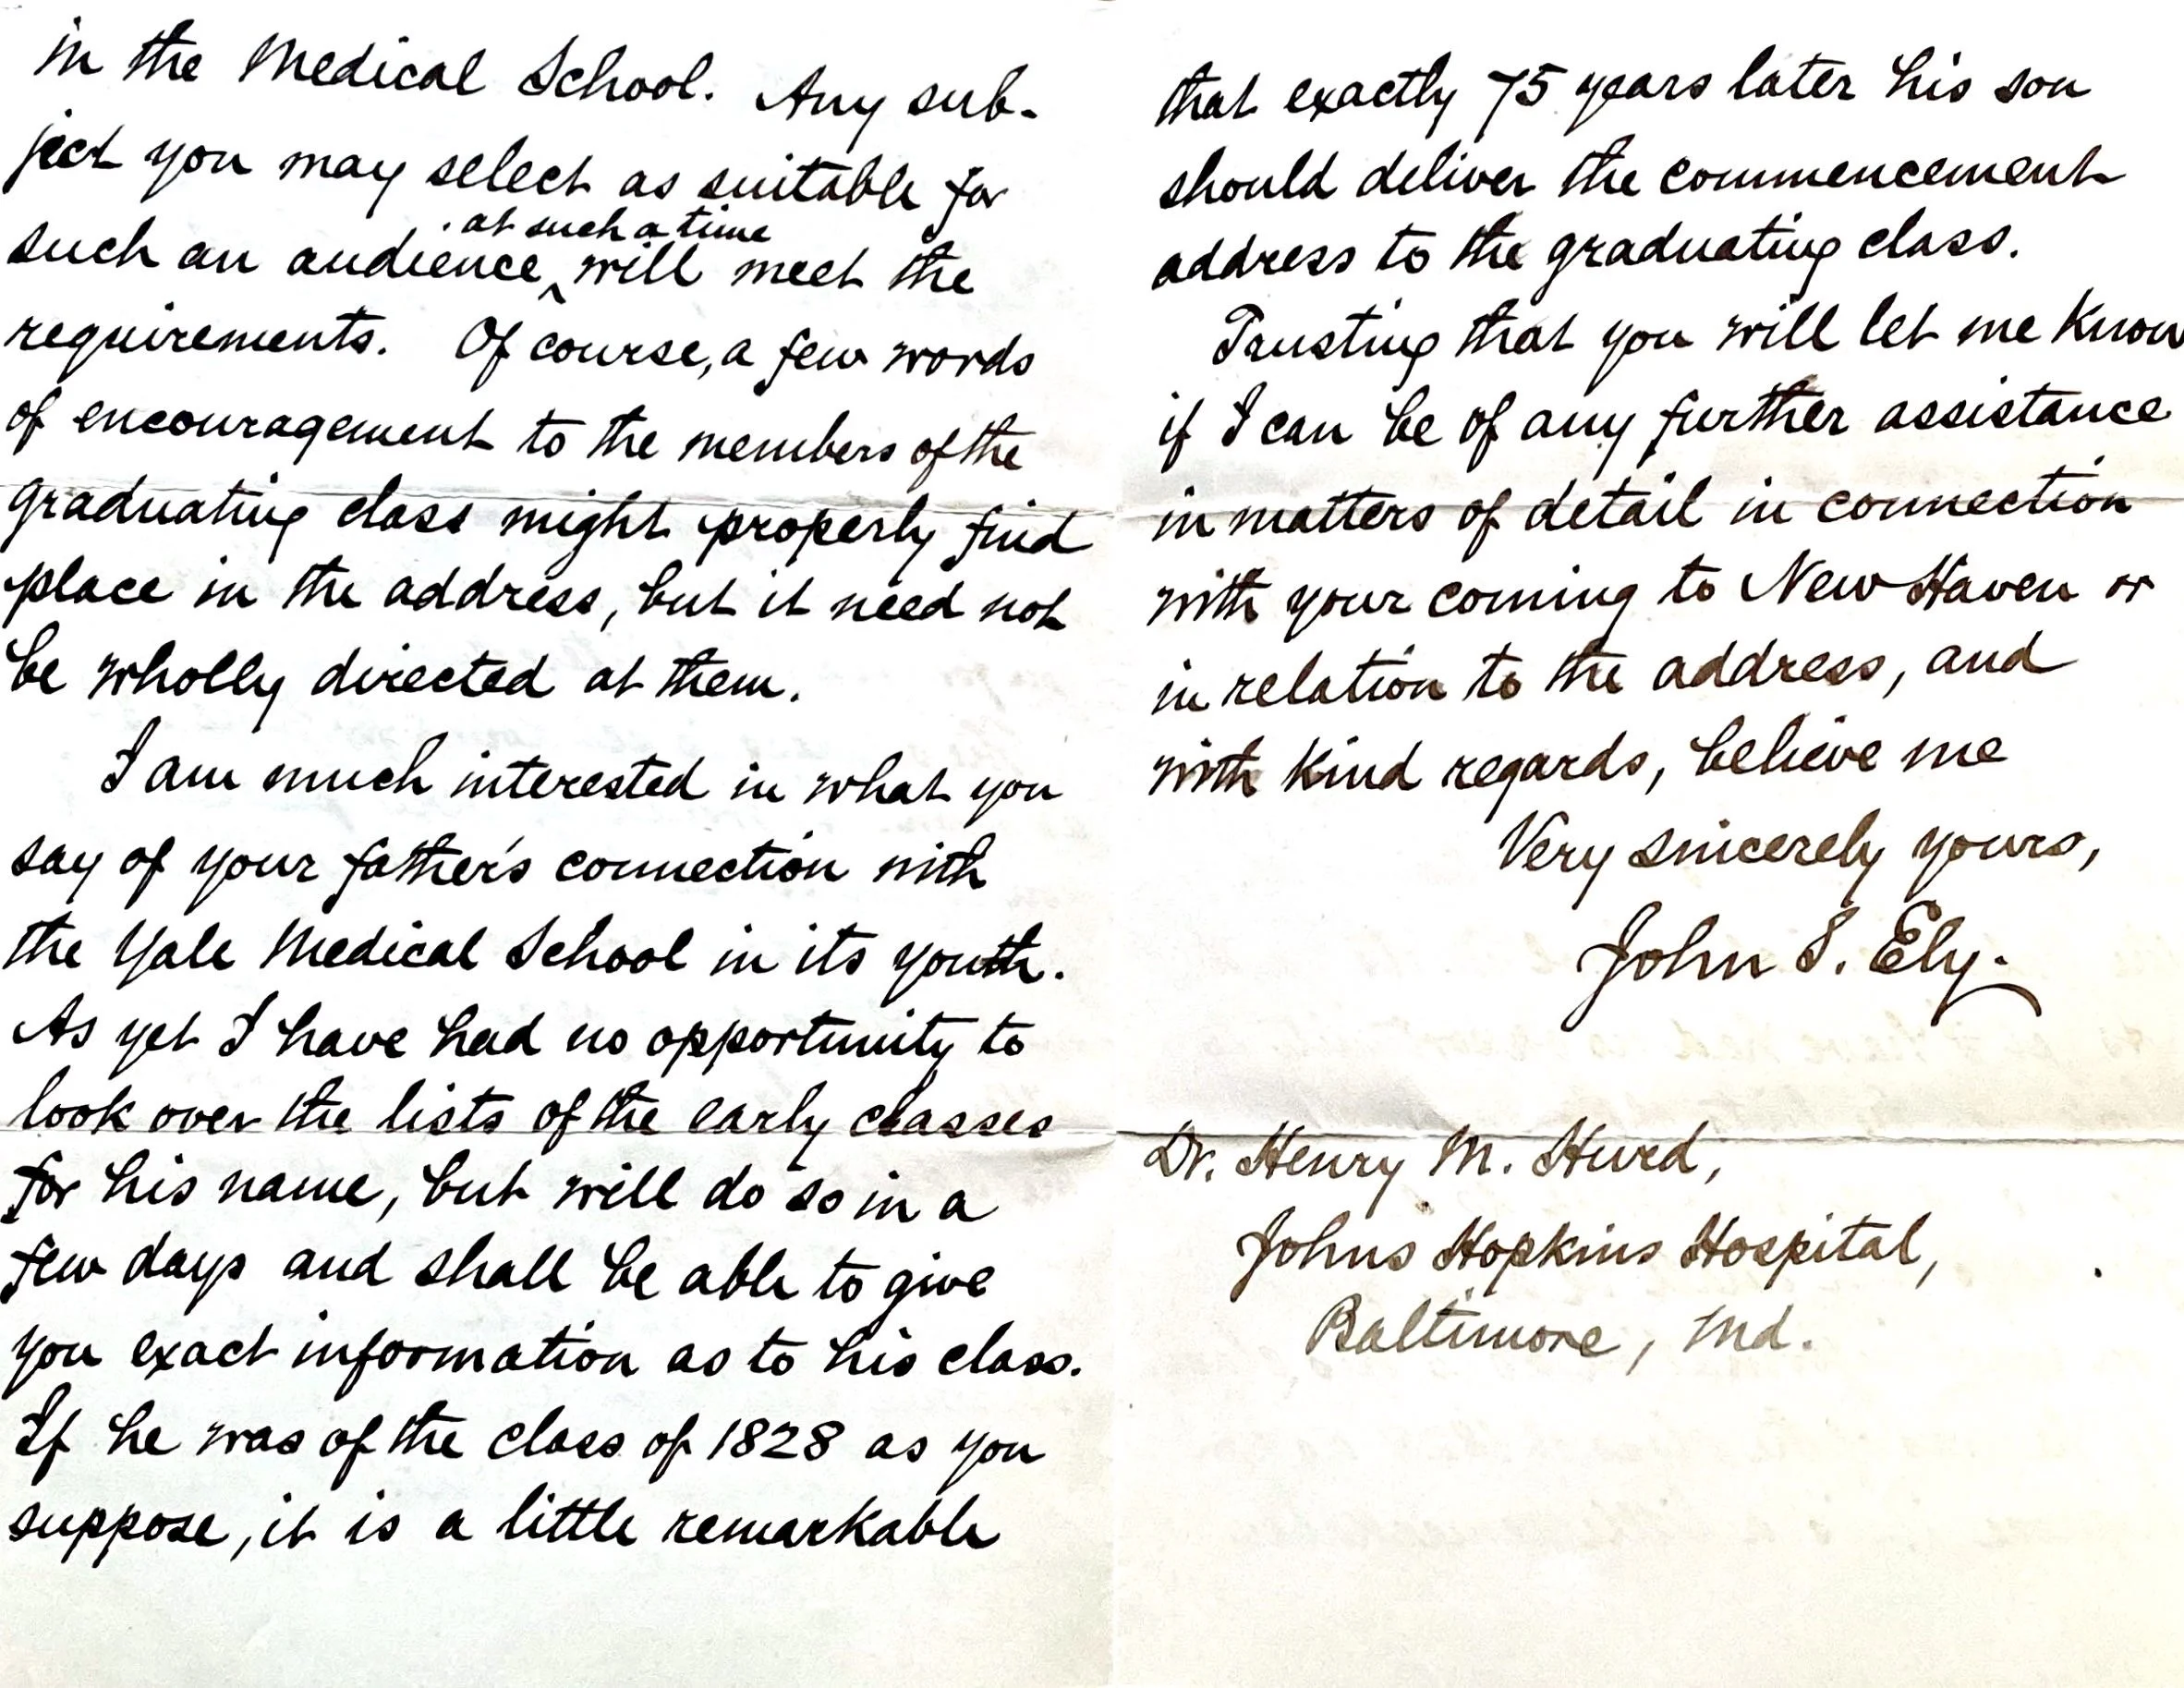 in the Medical School. Any sub-
ject you may select as suitable for
at such a time
such an audience ^ will meet the
requirements. Of course, a few words
of encouragement to the members of the
graduating class might properly find
place in the address, but it need not
be wholly directed at them.
I am much interested in what you
say of your father's connection with
the Yale Medical School in its youth.
As yet I have had no opportunity to
look over the lists of the early classes
for his name, but will do so in a
few days and shall be able to give
you exact information as to his class.
If he was of the class of 1828 as you
suppose, it is a little remarkable
that exactly 75 years later his son
should deliver the commencement
address to the graduating class.
Trusting that you will let me know
if I can be of any further assistance
in matters of detail in connection
with your coming to New Haven or
in relation to the address, and
with kind regards, believe me
Very sincerely yours,
John S. Ely.
Dr. Henry M. Hurd,
Johns Hopkins Hospital,
Baltimore, Md.